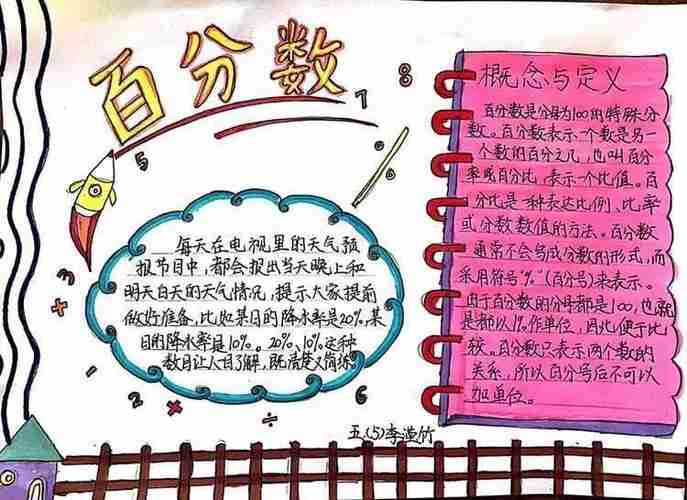 百分数
8
7
5
6
概念与定义
百分数是分母为100的特殊分
数。百分数表示一个数是另一
个数的百分之几，也叫百分
率或百分比，表示一个比值。百
分比是一种表达比例、比率
或分数数值的方法。百分数
通常不会写成分数的形式，而
采用符号“%”(百分号)来表示。
由于百分数的分母都是100，也就
是都以1%作单位，因此便于比
较。百分数只表示两个数的
关系，所以百分号后不可以
加单位。
每天在电视里的天气预
报节目中，都会报出当天晚上和
明天白天的天气情况，提示大家提前
做好准备，比如某日的降水率是20%，某
日的降水率是10%。20%、10%这种
数目让人一目了解，既清楚又简练
+
3
1
2
×
÷
6
五(5)李滢竹